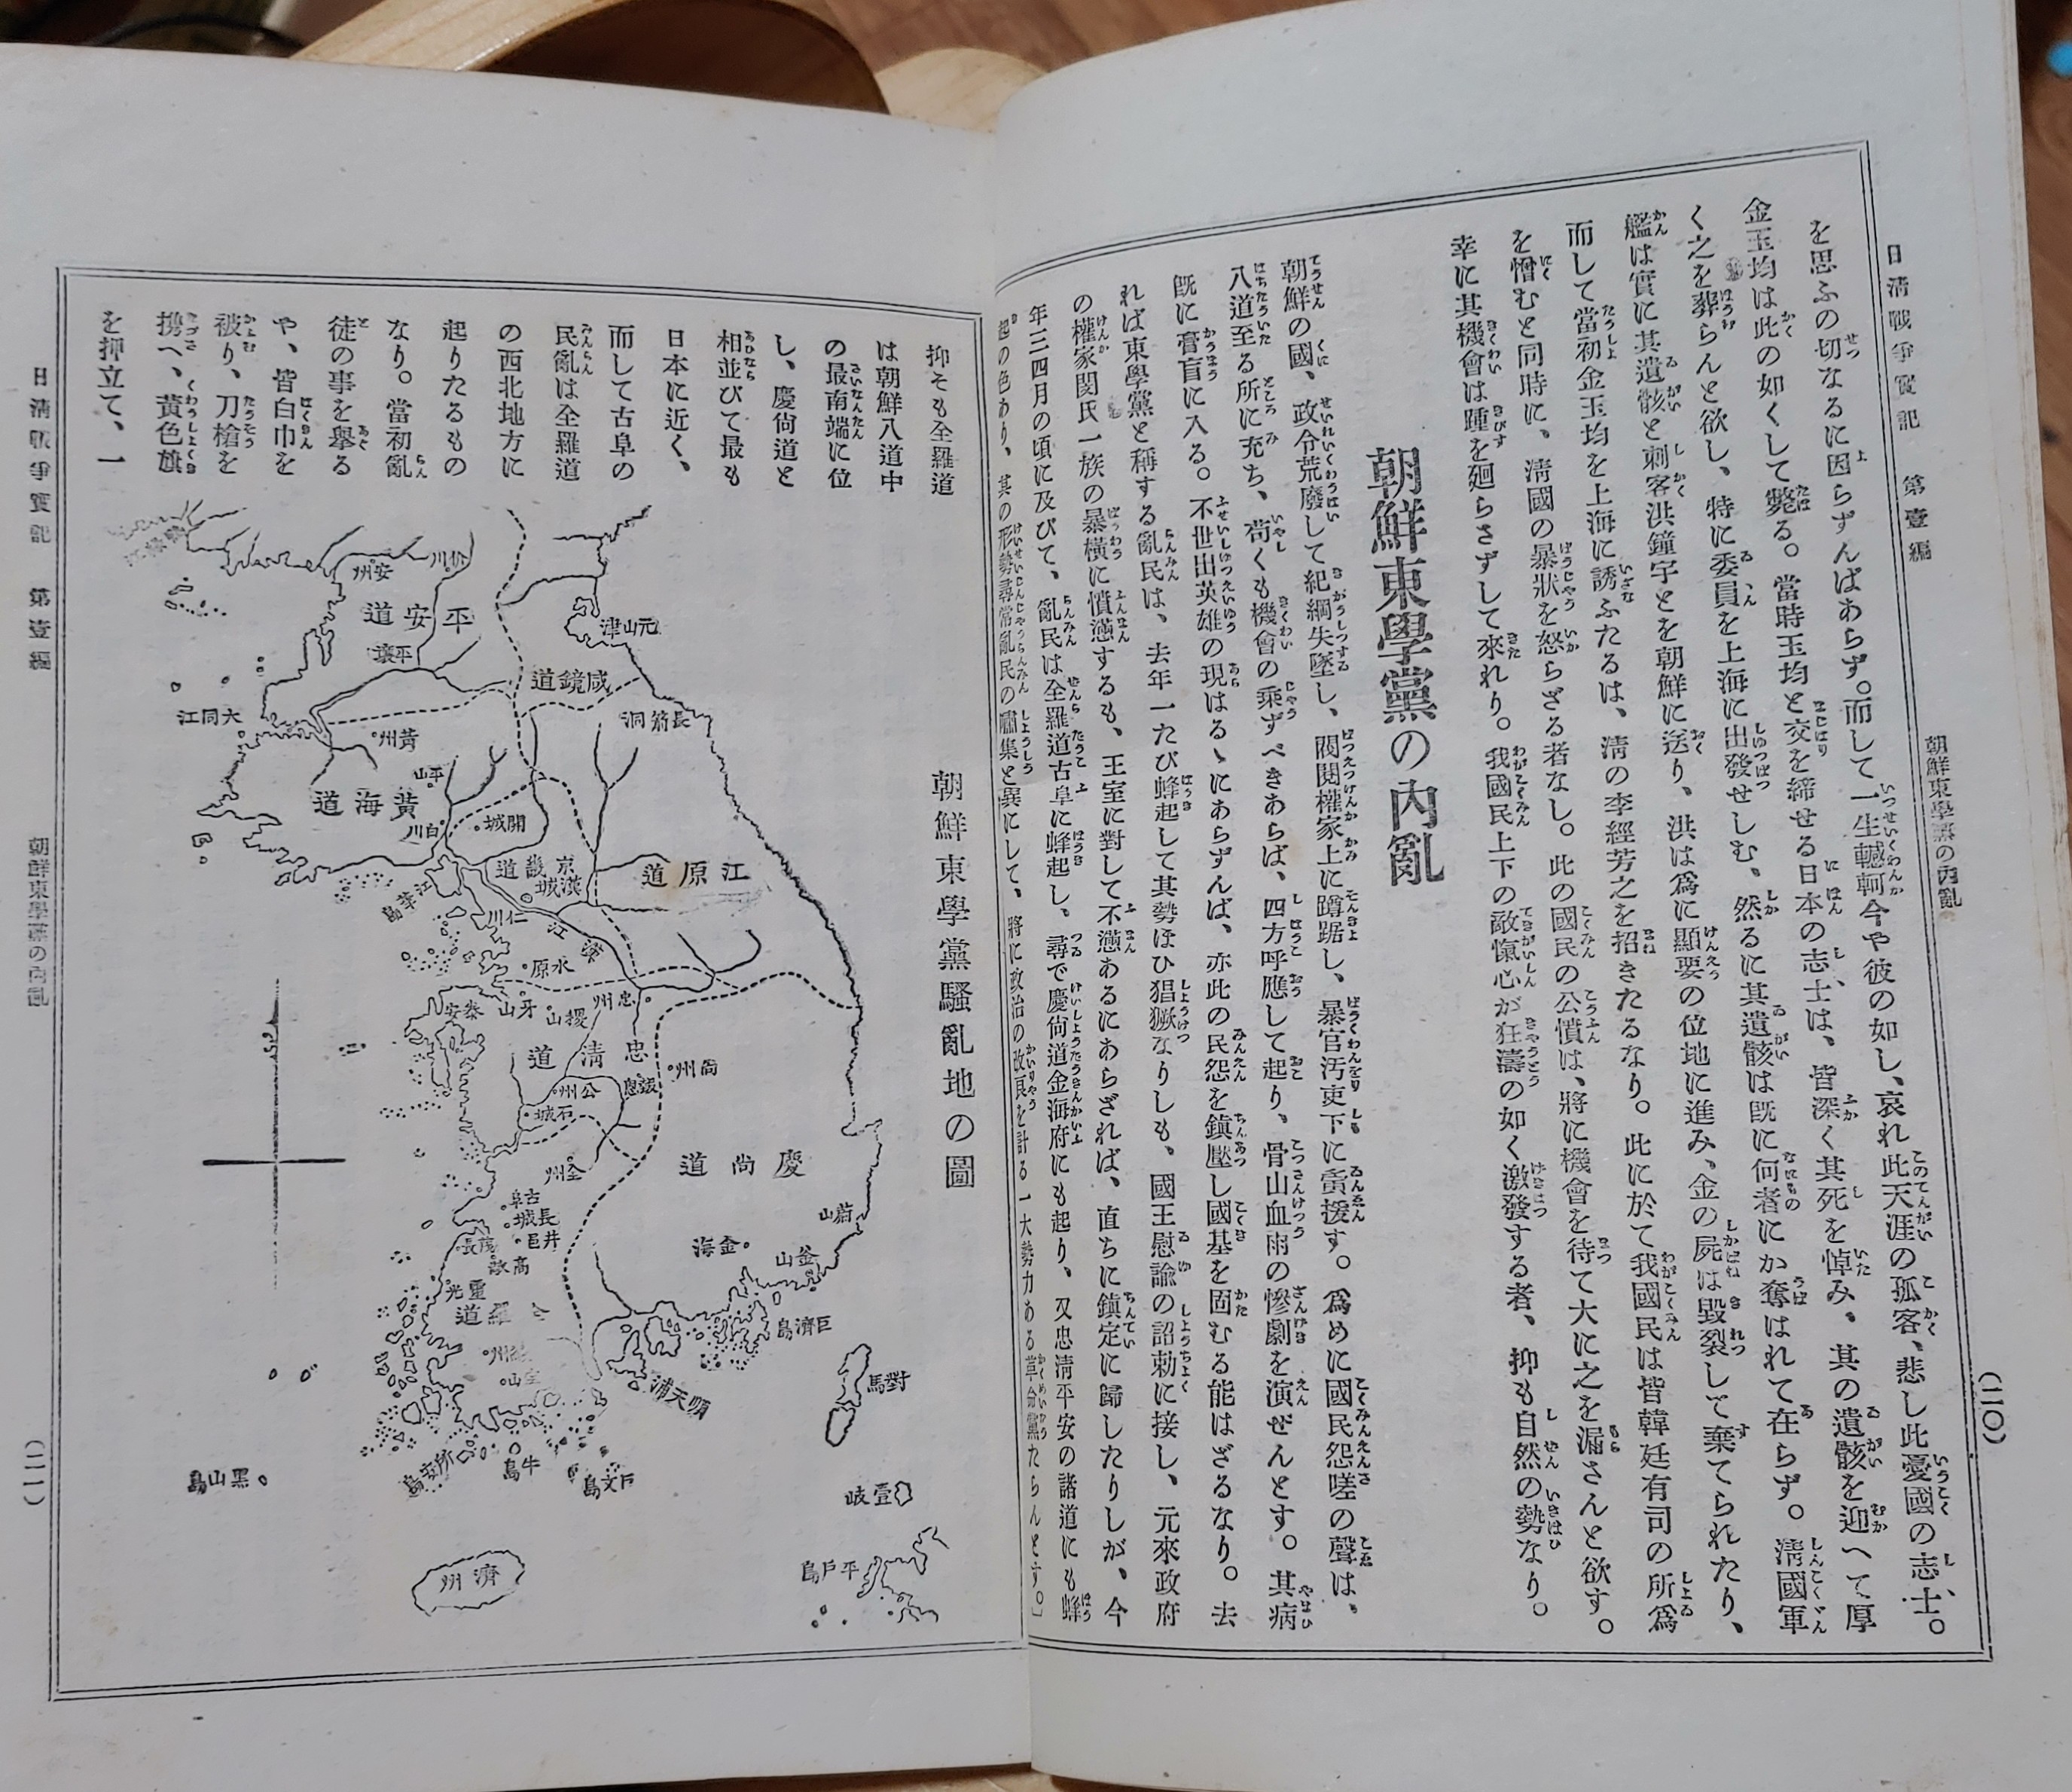 日清戰爭實記 第壹編 朝鮮東學黨の內亂 (二〇)
を思ふの切なるに因らずんばあらず。而して一生轗軻今や彼の如し、哀れ此天涯の孤客、悲し此憂國の志士。
金玉均は此の如くして斃る。當時玉均と交を締せる日本の志士は、皆深く其死を悼み、其の遺骸を迎へて厚
く之を葬らんと欲し、特に委員を上海に出發せしむ、然るに其遺骸は既に何者にか奪はれて在らず。淸國軍
艦は實に其遺骸と刺客洪鐘宇とを朝鮮に送り、洪は爲に顯要の位地に進み、金の屍は毀裂して棄てられたり、
而して當初金玉均を上海に誘ふたるは、淸の李經芳之を招きたるなり。此に於て我國民は皆韓廷有司の所爲
を憎むと同時に、淸國の暴狀を怒らざる者なし。此の國民の公憤は、將に機會を待て大に之を漏さんと欲す。
幸に其機會は踵を廻らさずして來れり。我國民上下の敵愾心が狂濤の如く激發する者、抑も自然の勢なり。
朝鮮東學黨の內亂
朝鮮の國、政令荒廢して紀綱失墜し、閥閱權家上に蹲踞し、暴官汚吏下に夤援す。爲めに國民怨嗟の聲は、
八道至る所に充ち、苟くも機會の乘ずべきあらば、四方呼應して起り、骨山血雨の慘劇を演ぜんとす。其病
既に膏盲に入る。不世出英雄の現はるゝにあらずんば、亦此の民怨を鎭壓し國基を固むる能はざるなり。去
れば東學黨と稱する亂民は、去年一たび蜂起して其勢ほひ猖獗なりしも、國王慰諭の詔勅に接し、元來政府
の權家閔氏一族の暴橫に憤懣するも、王室に對して不懣あるにあらざれば、直ちに鎭定に歸したりしが、今
年三四月の頃に及びて、亂民は全羅道古阜に蜂起し、尋で慶尙道金海府にも起り、又忠淸平安の諸道にも蜂
起の色あり、其の形勢尋常亂民の嘯集と異にして、將に政治の改良を計る一大勢力ある革命黨たらんとす。」
抑そも全羅道
は朝鮮八道中
の最南端に位
し、慶尙道と
相並びて最も
日本に近く、
而して古阜の
民亂は全羅道
の西北地方に
起りたるもの
なり。當初亂
徒の事を擧る
や、皆白巾を
被り、刀槍を
携へ、黃色旗
を押立て、一
朝鮮東學黨騷亂地の圖
价川
安州
平安道
平壤
元山津
咸鏡道
大同江
黃州
長箭洞
平山
黃海道
白川
開城
京畿道
漢城
江原道
江華島
仁川
漢江
水原
泰安
牙山
稷山
忠州
忠淸道
公州
石城
報恩
尙州
慶尙道
全州
古阜
長城
井邑
茂長
高敞
靈光
全羅道
金海
釜山
蔚山
巨濟島
順天浦
對馬
黑山島
所安島
牛島
巨文島
壹岐
平戶島
濟州
日淸戰爭實記 第壹編 朝鮮東學黨の內亂 (二一)